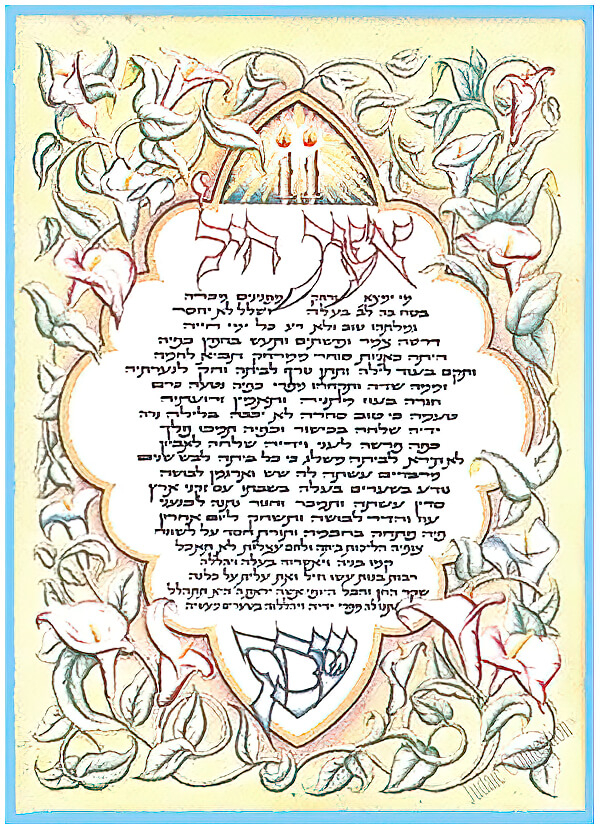 אשת חיל
מי ימצא ורחק מפנינים מכרה
בטח בה לב בעלה ושלל לא יחסר
גמלתהו טוב ולא רע כל ימי חייה
דרשה צמר ופשתים ותעש בחפץ כפיה
היתה כאניות סוחר ממרחק תביא לחמה
ותקם בעוד לילה ותתן טרף לביתה וחק לנערתיה
זממה שדה ותקחהו מפרי כפיה נטעה כרם
חגרה בעוז מתניה ותאמץ זרועתיה
טעמה כי טוב סחרה לא יכבה בלילה נרה
ידיה שלחה בכישור וכפיה תמכו פלך
כפה פרשה לעני וידיה שלחה לאביון
לא תירא לביתה משלג כי כל ביתה לבש שנים
מרבדים עשתה לה שש וארגמן לבושה
נודע בשערים בעלה בשבתו עם זקני ארץ
סדין עשתה ותמכר וחגור נתנה לכנעני
עוז והדר לבושה ותשחק ליום אחרון
פיה פתחה בחכמה ותורת חסד על לשונה
צופיה הליכות ביתה ולחם עצלות לא תאכל
קמו בניה ויאשרוה בעלה ויהללה
רבות בנות עשו חיל ואת עלית על כלנה
שקר החן והבל היופי אשה יראת ה׳ היא תתהלל
תנו לה מפרי ידיה ויהללוה בשערים מעשיה